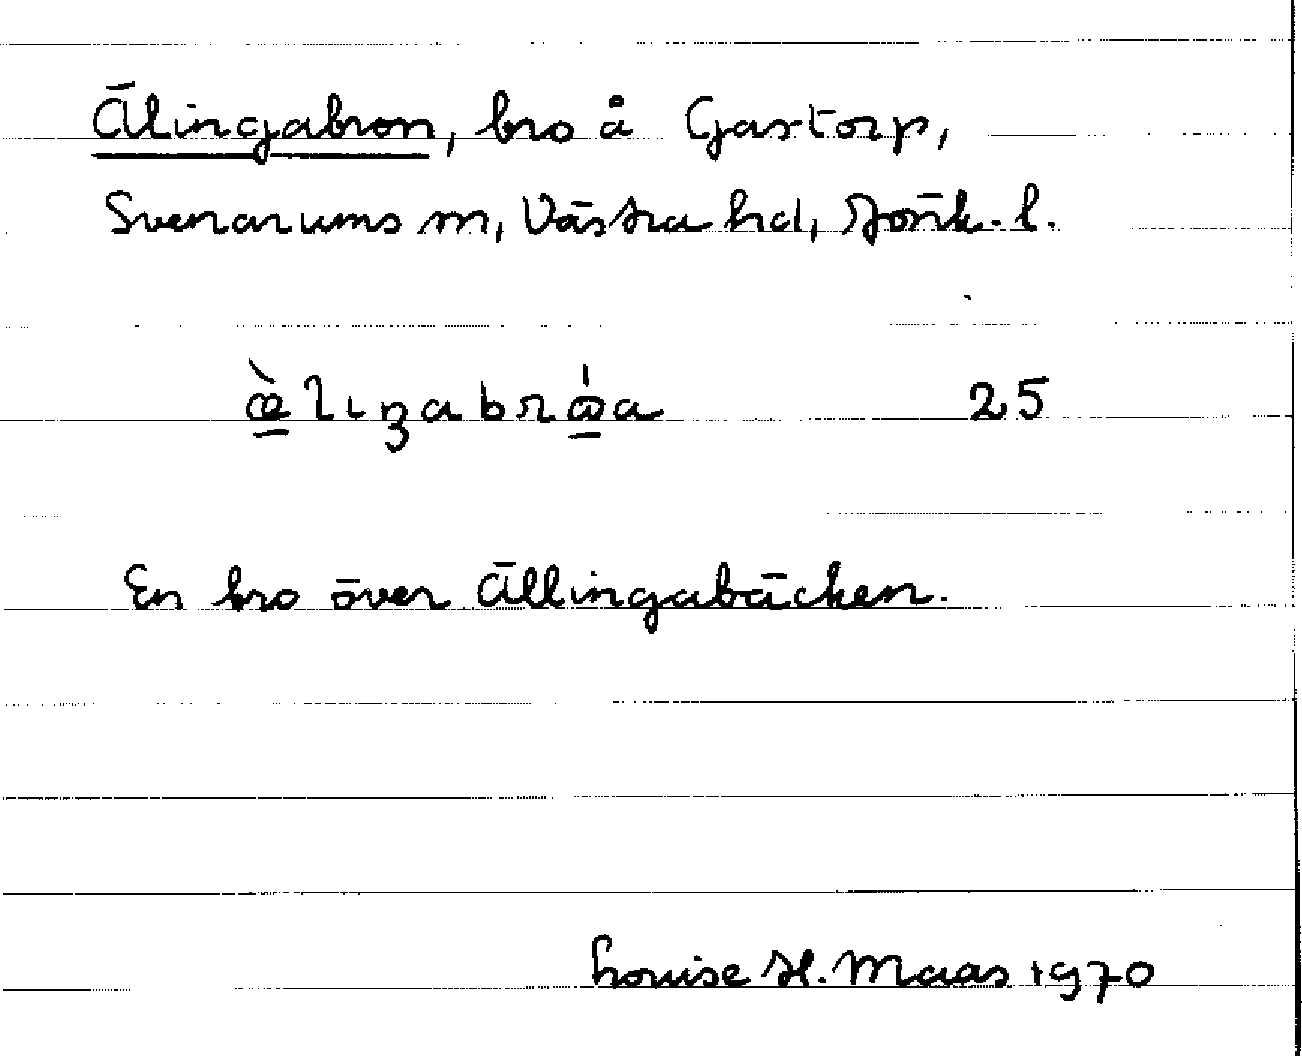 Älingabron, bro å Gastorp,
Svenarums sn, Västra hd, Jönk. l.
25
En bro över Ällingabäcken.
Louise H. Maas 1970